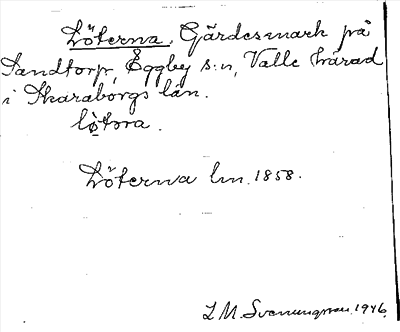 Löterna, Gärdesmark på
Sandtorp, Eggby s:n, Valle härad
i Skaraborgs län.
lö̀tɷra.
Löterna lm. 1858.
L M. Svenungsson. 1946.